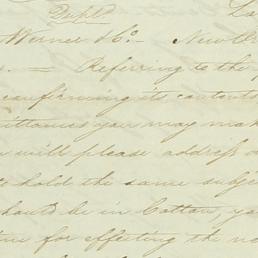 Dupld La
Werner & Co. — New Or
s. — Referring to the
confirming its contents
ittances you may mak
will please address
to hold the same subje
should be in Cotton, yo
for effecting the